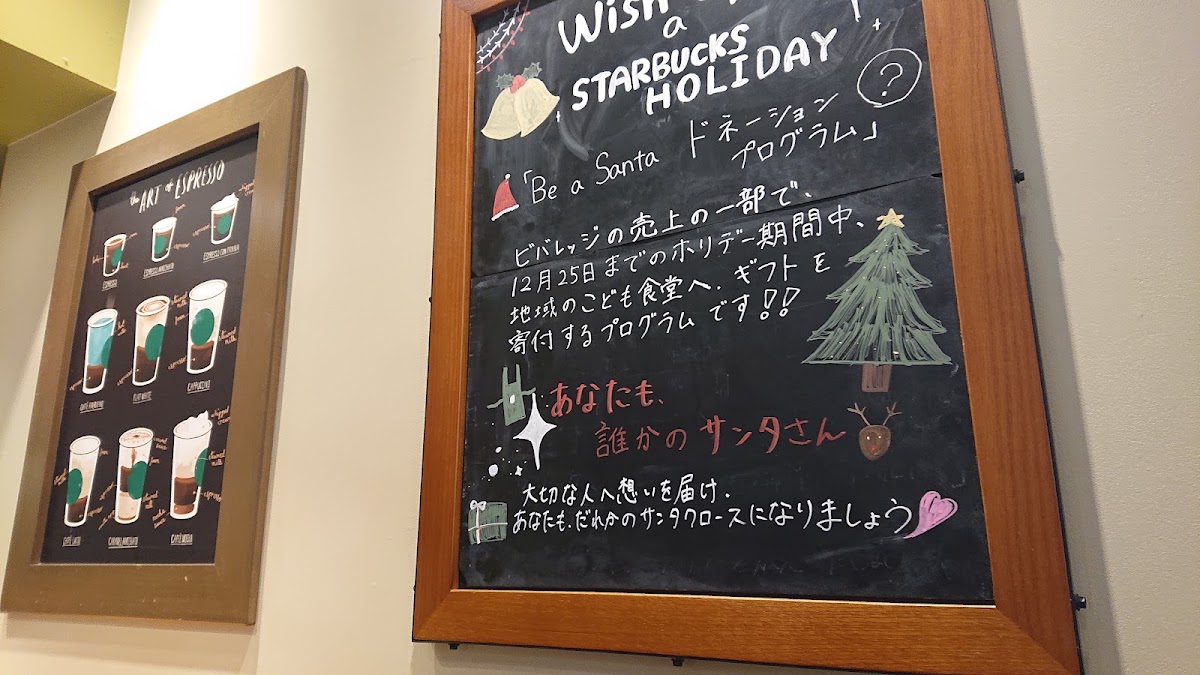 the ART of ESPRESSO
ESPRESSO
ESPRESSO MACCHIATO
ESPRESSO CON PANNA
FLAT WHITE
CAPPUCCINO
CAFFÈ LATTE
CARAMEL MACCHIATO
CAFFÈ MOCHA
Wish
a
STARBUCKS
HOLIDAY
?
「Be a Santa ドネーション
プログラム」
ビバレッジの売上の一部で、
12月25日までのホリデー期間中、
地域のこども食堂へ、ギフトを
寄付するプログラムです!!
あなたも、
誰かのサンタさん
大切な人へ想いを届け、
あなたも、だれかのサンタクロースになりましょう